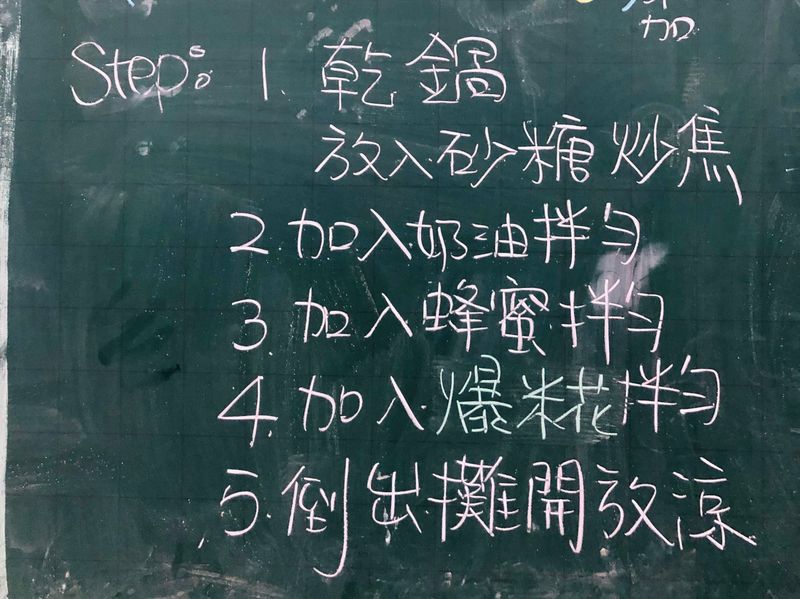 加
Step: 1. 乾鍋
放入砂糖炒焦
2. 加入奶油拌勻
3. 加入蜂蜜拌勻
4. 加入爆米花拌勻
5. 倒出攤開放涼